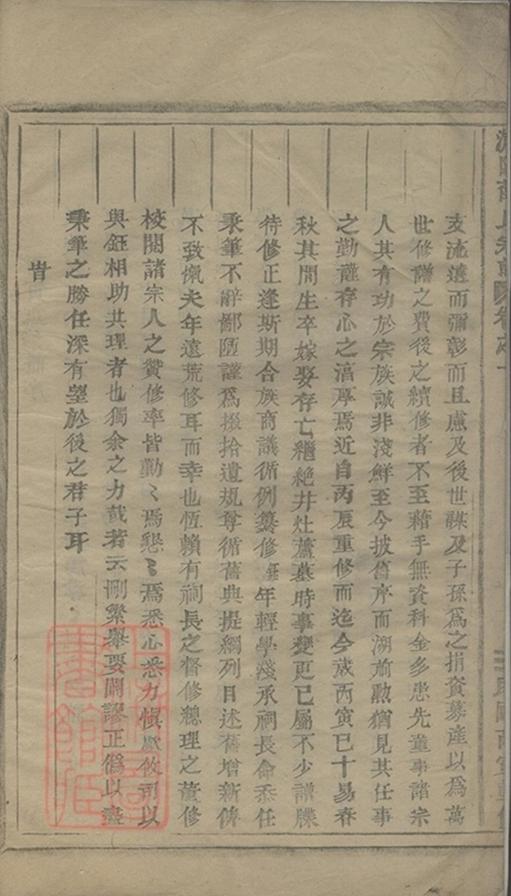 支流遠而彌彰而且慮及後世謀及子孫為之捐資募產以為萬
世修譜之費後之續修者不至藉手無資科金多患先董事諸宗
人其有功於宗族誠非淺鮮至今披舊序而溯前勲猶見其任事
之勤謹存心之渭厚焉近自丙辰重修而迄今歲丙寅已十易春
秋其間生卒嫁娶存亡繼絕井灶蘆墓時事變更已屬不少譜牒
待修正逢斯期合族商議循例纂修鈺年輕學淺承祠長命忝任
秉筆不辭鄙陋謹為掇拾遺規尊循舊典提綱列目述舊增新俾
不致慨夫年遠荒修耳而幸也恆賴有祠長之督修總理之董修
校閱諸宗人之贊修率皆勤〻焉懇〻焉悉心悉力慎 攸司以
與鈺相助共理者也獨余之力哉若云刪繁舉要闢謬正偽以盡
秉筆之勝任深有望於後之君子耳
旹